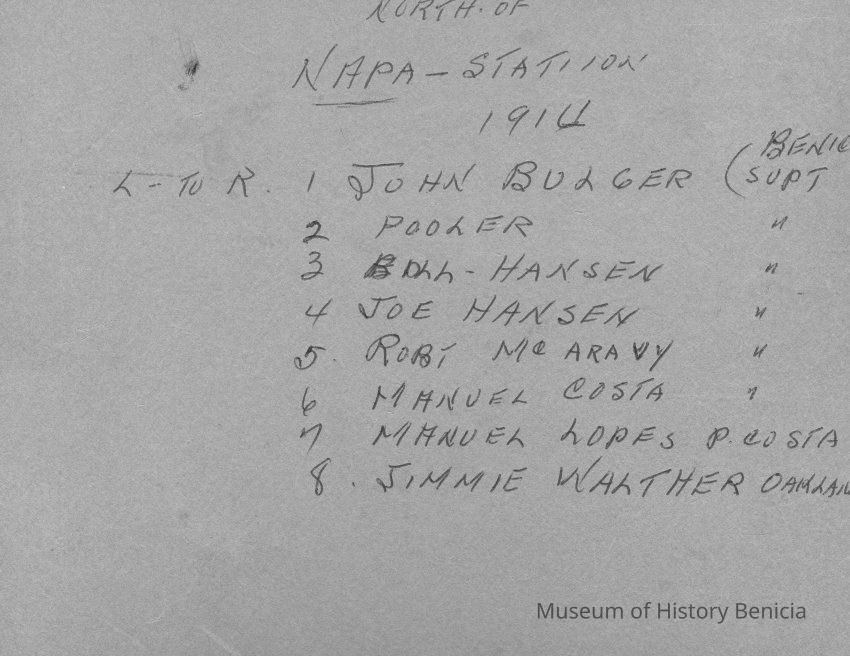 NORTH. OF
NAPA - STATIION
1914
L - TO R. 1 JOHN BULGER (BENIC
SUPT
2 POOLER "
3 BILL - HANSEN "
4 JOE HANSEN "
5. ROBT MC ARAVY "
6 MANUEL COSTA "
7 MANUEL LOPES P. COSTA
8. JIMMIE WALTHER OAKLAN
Museum of History Benicia